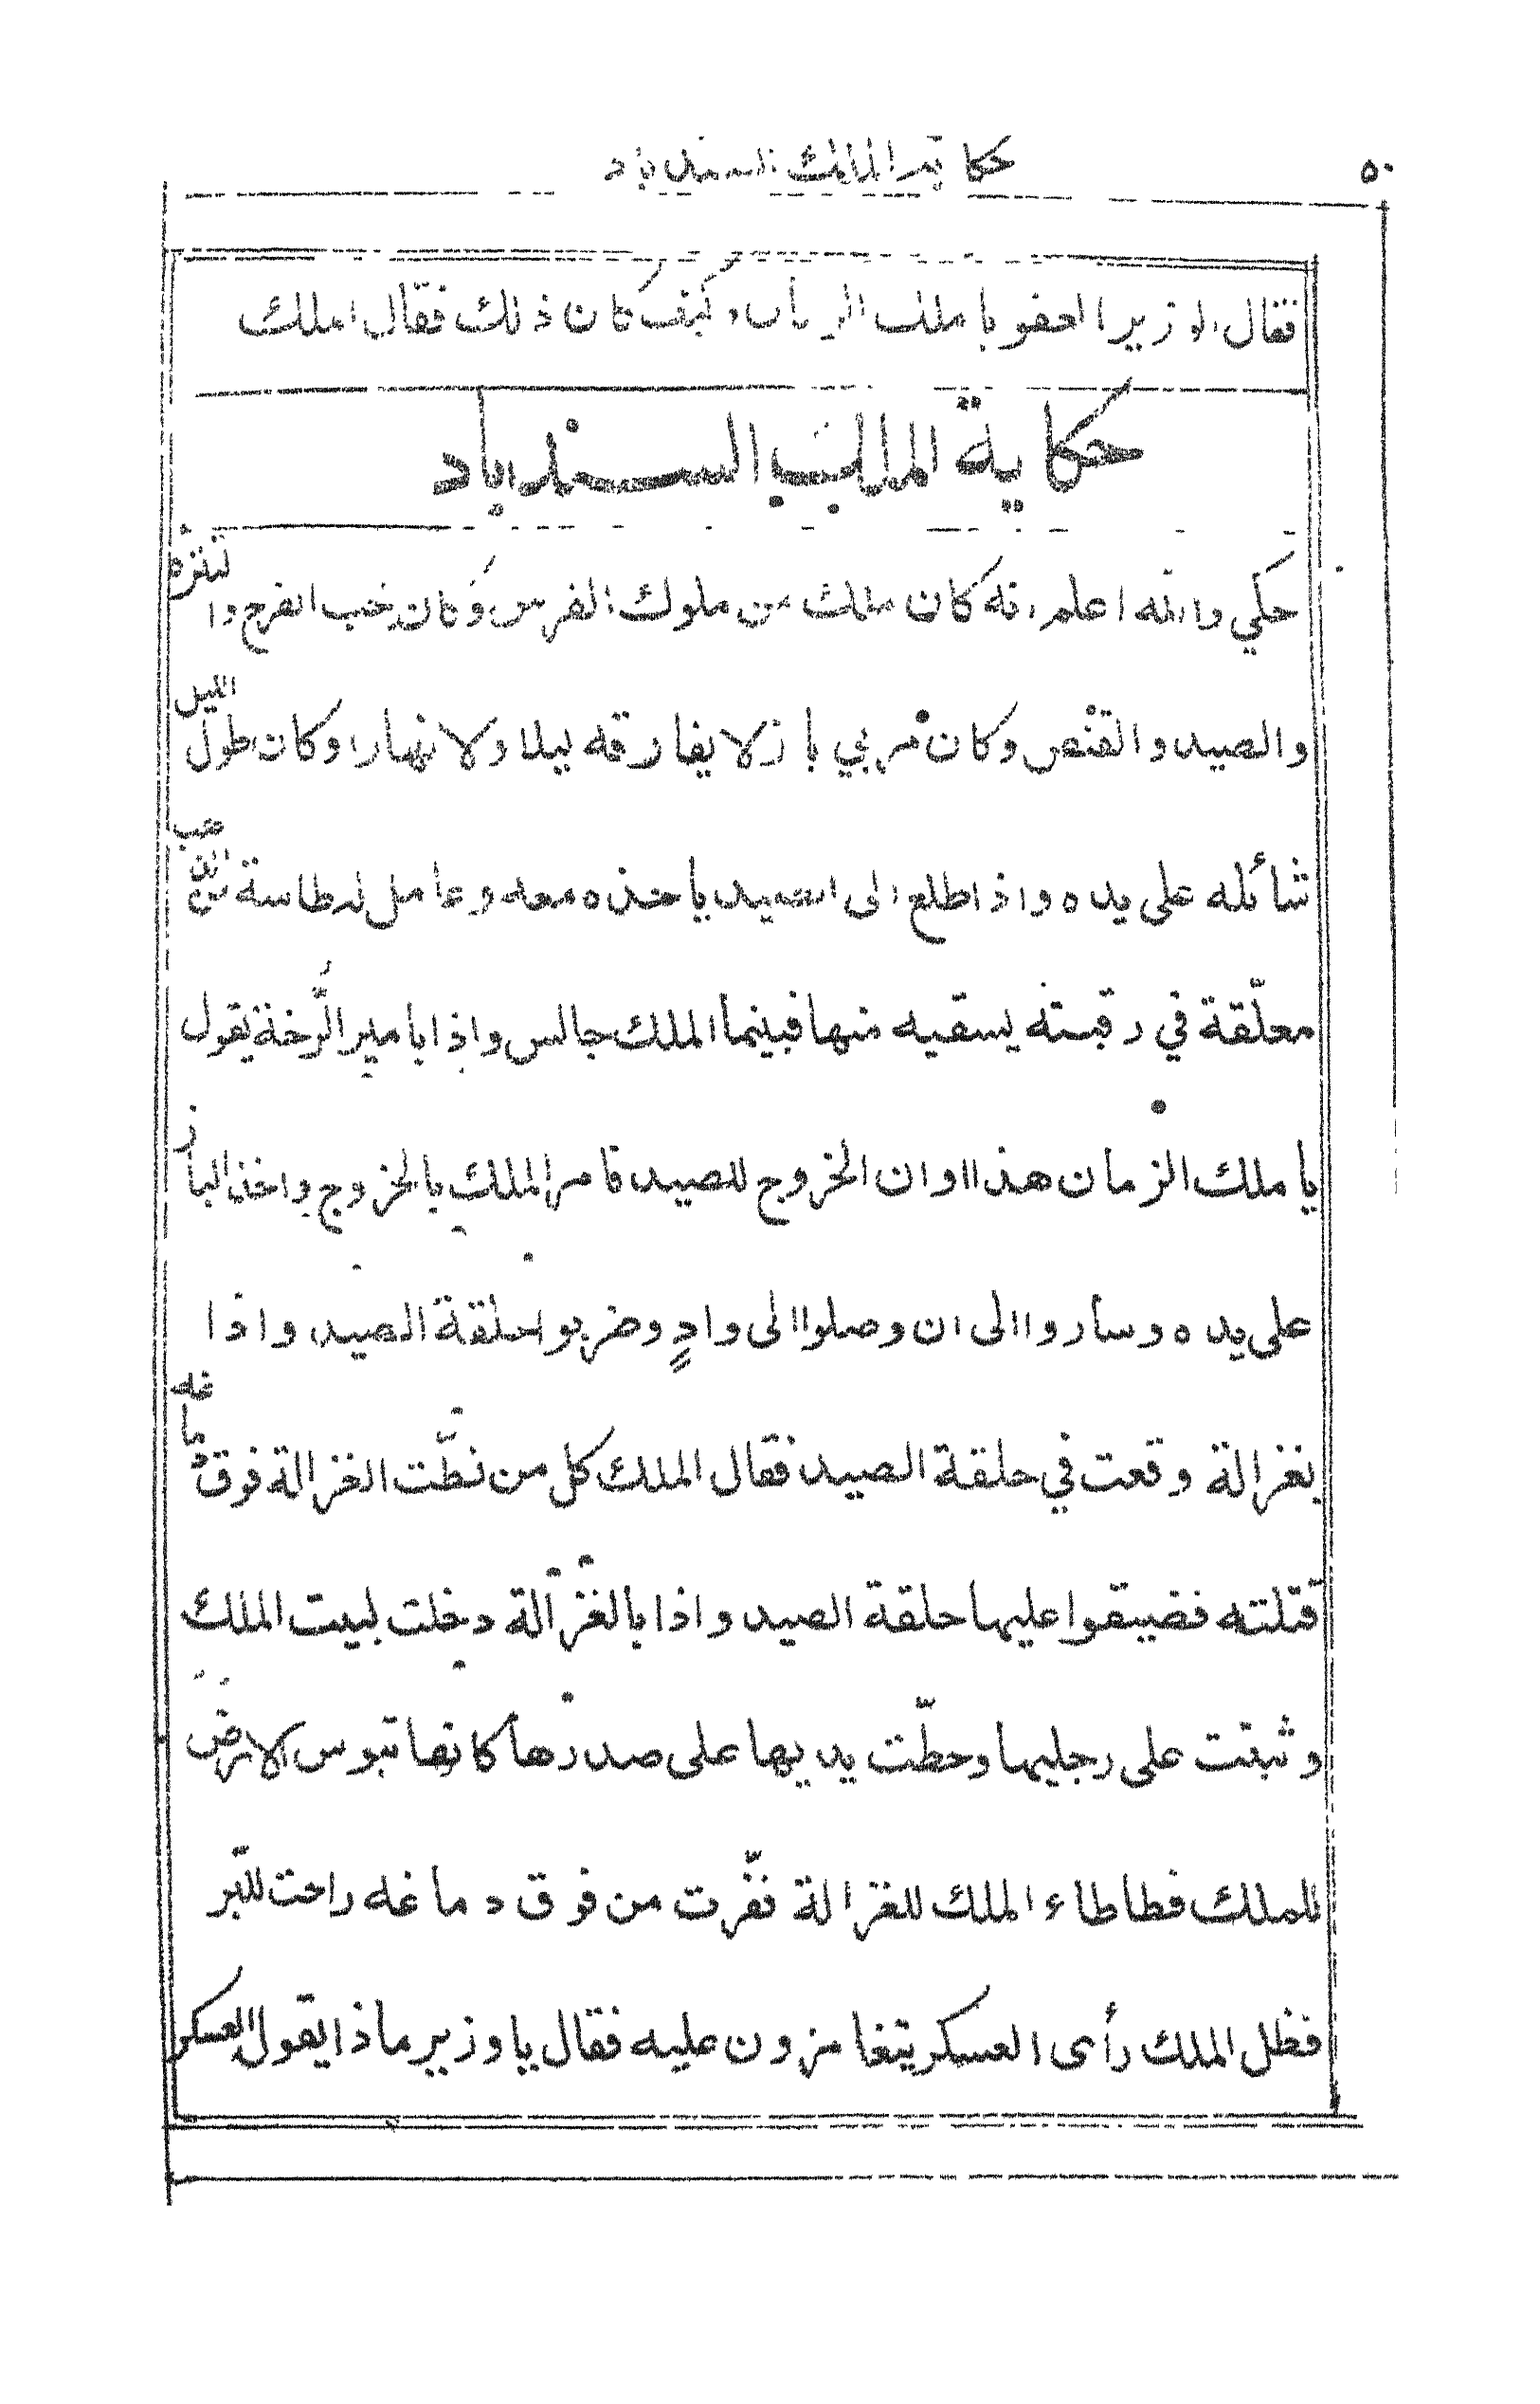 ٥٠
حكاية الملك السندباد
فقال الوزير العفو يا ملك الزمان وكيف كان ذلك فقال الملك
حكاية الملك السندباد
حكي والله اعلم انه كان ملك من ملوك الفرس وكان يحب الفرج والتنزه
والصيد والقنص وكان مربي باز لا يفارقه ليلا ولا نهارا وكان طول الليل
شائله على يده واذا طلع الى الصيد ياخذه معه وعامل له طاسة من الذهب
معلّقة في رقبته يسقيه منها فبينما الملك جالس واذا بامير الرّخة يقول
يا ملك الزمان هذا اوان الخروج للصيد فامر الملك بالخروج واخذ الباز
على يده وساروا الى ان وصلوا الى وادٍ وضربوا حلقة الصيد واذا
بغزالة وقعت في حلقة الصيد فقال الملك كل من نطّت الغزالة فوق دماغه
قتلته فضيقوا عليها حلقة الصيد واذا بالغزالة دخلت لبيت الملك
وثبتت على رجليها وحطّت يديها على صدرها كانها تبوس الارض
للملك فطاطاء الملك للغزالة نفّرت من فوق دماغه راحت للبّر
فظل الملك رأى العسكر يتغامزون عليه فقال يا وزير ماذا يقول العسكر